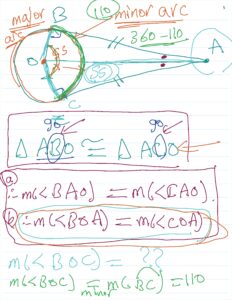 B
major arc
110
minor arc
360-110
A
O
55
55
C
90 90
Δ ABO ≅ Δ ACO
a: ∴ m(<BAO) = m(<CAO).
b: ∴ m(<BOA) = m(<COA)
m(<BOC) = ??
m(<BOC) = m(BC) = 110
minor